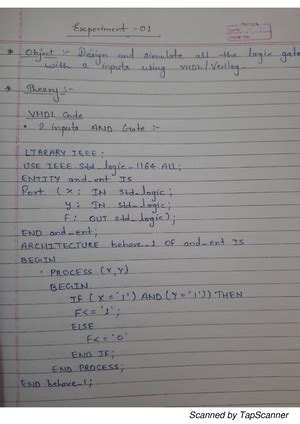 Experiment - 01
* Object :- Design and simulate all the logic gate
with 2 inputs using VHDL/Verilog.
* Theory :-
VHDL Code
• 2 inputs AND Gate :-
LIBRARY IEEE;
USE IEEE.Std_logic_1164.ALL;
ENTITY and_ent IS
Port (x: IN std_logic;
y: IN std_logic;
F: OUT std_logic);
END and_ent;
ARCHITECTURE behave_1 OF and_ent IS
BEGIN
PROCESS (X,Y)
BEGIN
IF (X='1') AND (Y='1') THEN
F<='1';
ELSE
F<='0'
END IF;
END PROCESS;
END behave_1;
Scanned by TapScanner